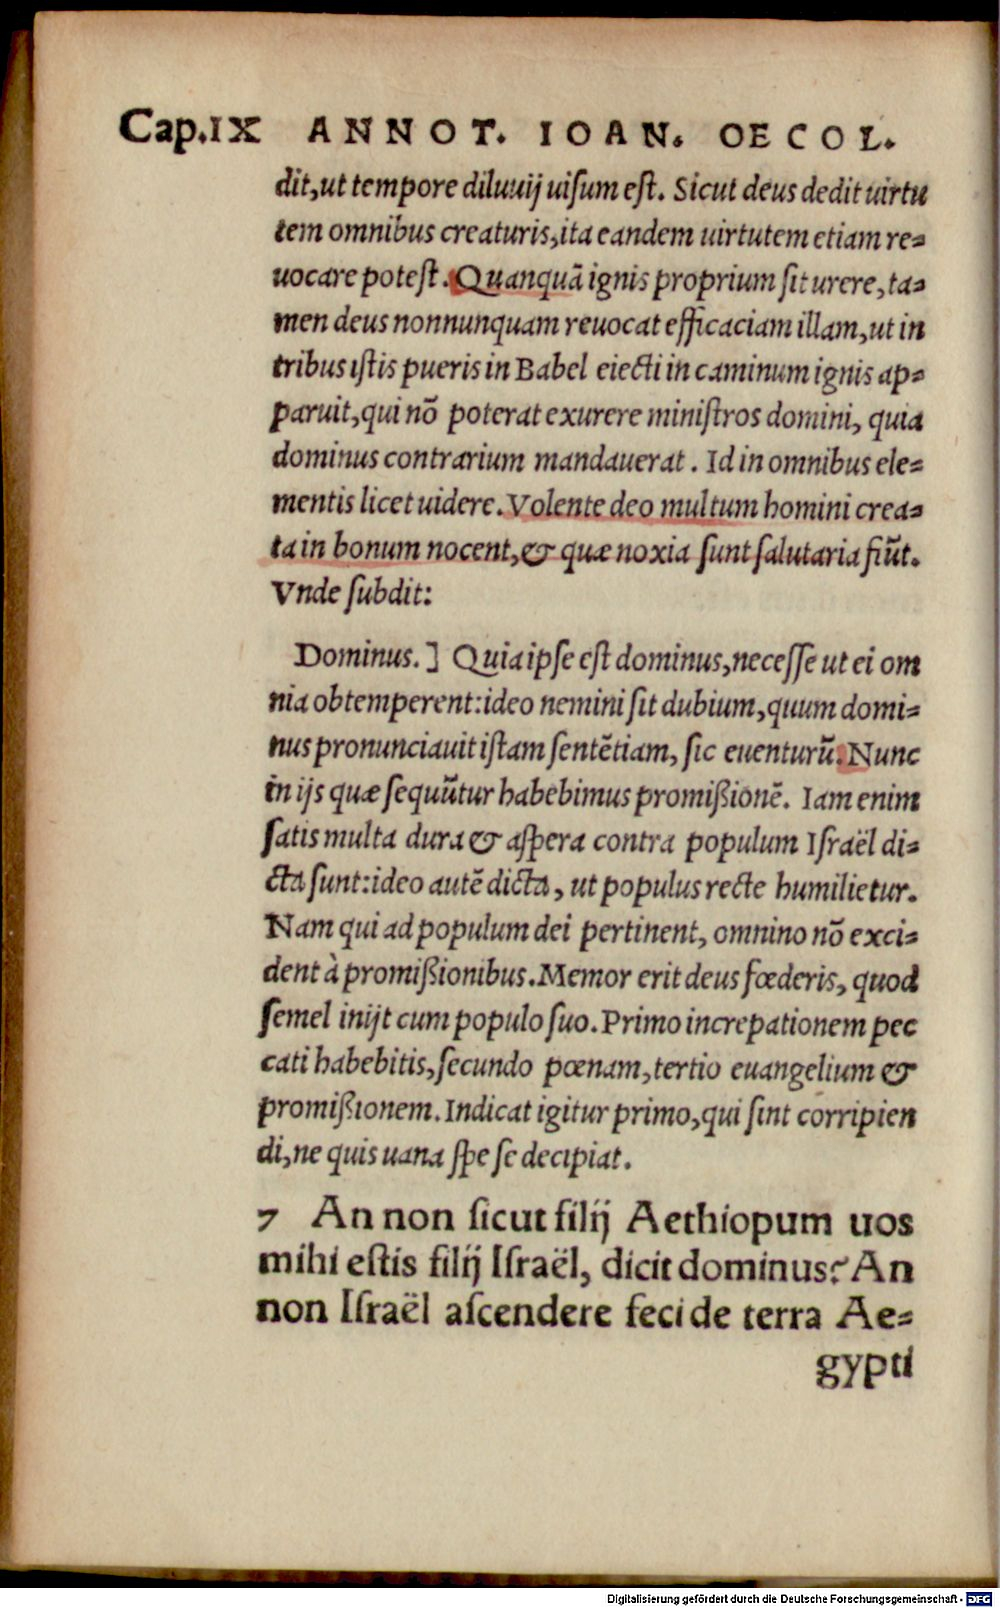 Cap.IX ANNOT. IOAN. OECOL.
dit,ut tempore diluuij uisum est. Sicut deus dedit uirtu
tem omnibus creaturis,ita eandem uirtutem etiam re=
uocare potest. Quanquã ignis proprium sit urere, ta=
men deus nonnunquam reuocat efficaciam illam,ut in
tribus istis pueris in Babel eiecti in caminum ignis ap=
paruit,qui nõ poterat exurere ministros domini, quia
dominus contrarium mandauerat. Id in omnibus ele=
mentis licet uidere. Volente deo multum homini crea=
ta in bonum nocent,& quæ noxia sunt salutaria fiũt.
Vnde subdit:
Dominus.] Quia ipse est dominus,necesse ut ei om
nia obtemperent:ideo nemini sit dubium,quum domi=
nus pronunciauit istam sentẽtiam, sic euenturũ. Nunc
in ijs quæ sequũtur habebimus promißionẽ. Iam enim
satis multa dura & aspera contra populum Israël di=
cta sunt:ideo autẽ dicta, ut populus recte humilietur.
Nam qui ad populum dei pertinent, omnino nõ exci=
dent à promißionibus.Memor erit deus fœderis, quod
semel inijt cum populo suo.Primo increpationem pec
cati habebitis,secundo pœnam,tertio euangelium &
promißionem.Indicat igitur primo,qui sint corripien
di,ne quis uana spe se decipiat.
7 An non sicut filij Aethiopum uos
mihi estis filij Israël, dicit dominus? An
non Israël ascendere feci de terra Ae=
gypti
Digitalisierung gefördert durch die Deutsche Forschungsgemeinschaft - DFG